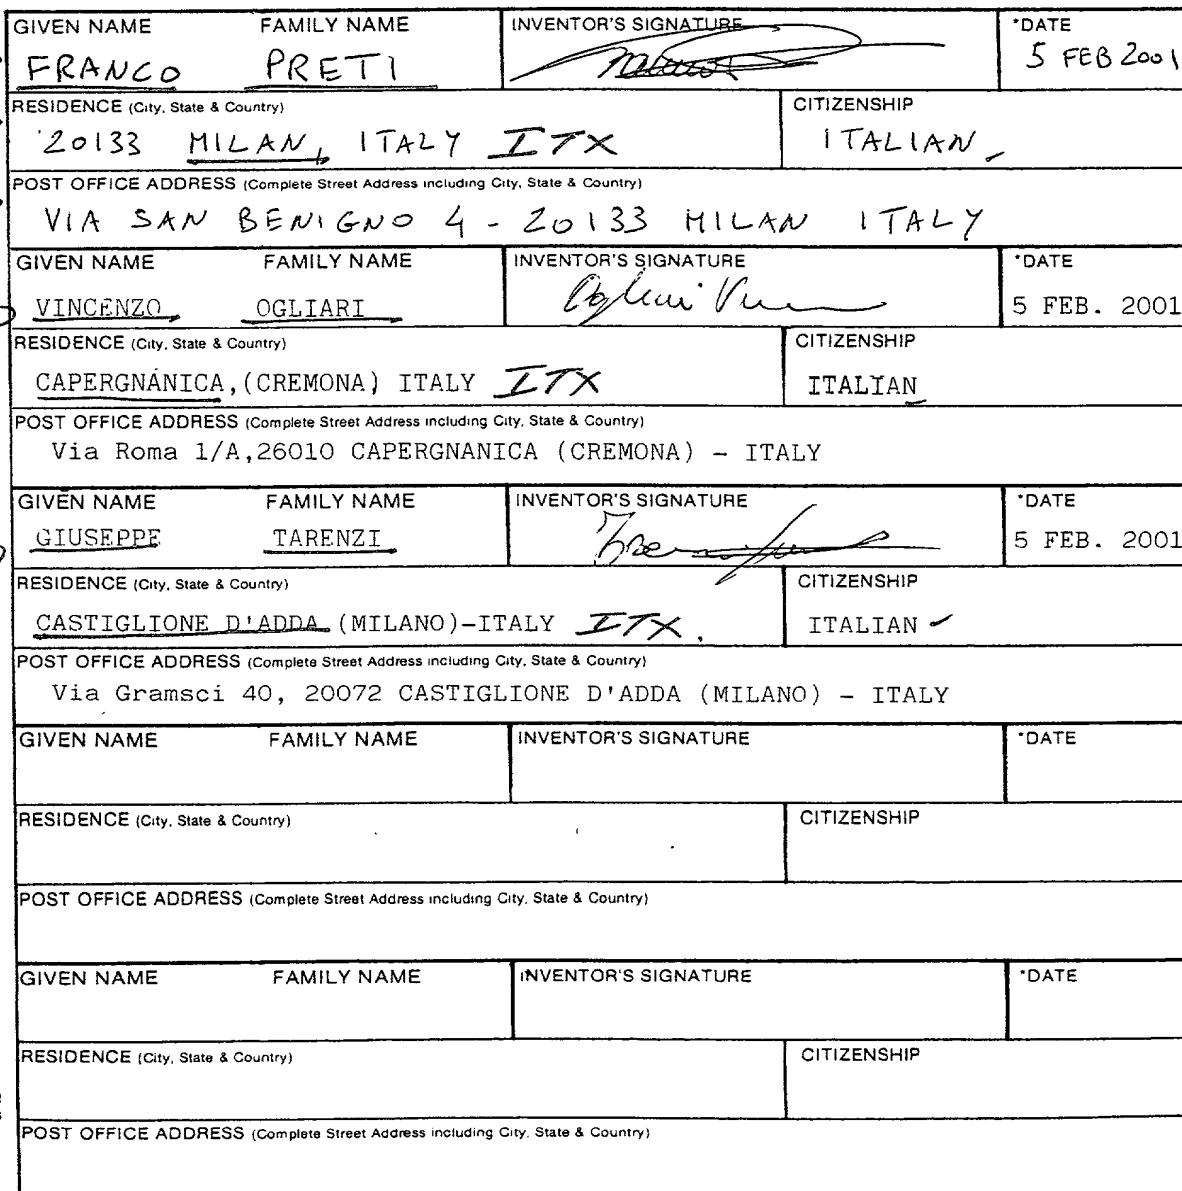 GIVEN NAME FAMILY NAME INVENTOR'S SIGNATURE *DATE
FRANCO PRETI 5 FEB 2001
RESIDENCE (City, State & Country) CITIZENSHIP
20133 MILAN, ITALY ITX ITALIAN
POST OFFICE ADDRESS (Complete Street Address including City, State & Country)
VIA SAN BENIGNO 4 - 20133 MILAN ITALY
GIVEN NAME FAMILY NAME INVENTOR'S SIGNATURE *DATE
VINCENZO OGLIARI Ogliari 5 FEB. 2001
RESIDENCE (City, State & Country) CITIZENSHIP
CAPERGNANICA, (CREMONA) ITALY ITX ITALIAN
POST OFFICE ADDRESS (Complete Street Address including City, State & Country)
Via Roma 1/A,26010 CAPERGNANICA (CREMONA) - ITALY
GIVEN NAME FAMILY NAME INVENTOR'S SIGNATURE *DATE
GIUSEPPE TARENZI 5 FEB. 2001
RESIDENCE (City, State & Country) CITIZENSHIP
CASTIGLIONE D'ADDA (MILANO)-ITALY ITX. ITALIAN
POST OFFICE ADDRESS (Complete Street Address including City, State & Country)
Via Gramsci 40, 20072 CASTIGLIONE D'ADDA (MILANO) - ITALY
GIVEN NAME FAMILY NAME INVENTOR'S SIGNATURE *DATE
RESIDENCE (City, State & Country) CITIZENSHIP
POST OFFICE ADDRESS (Complete Street Address including City, State & Country)
GIVEN NAME FAMILY NAME INVENTOR'S SIGNATURE *DATE
RESIDENCE (City, State & Country) CITIZENSHIP
POST OFFICE ADDRESS (Complete Street Address including City, State & Country)